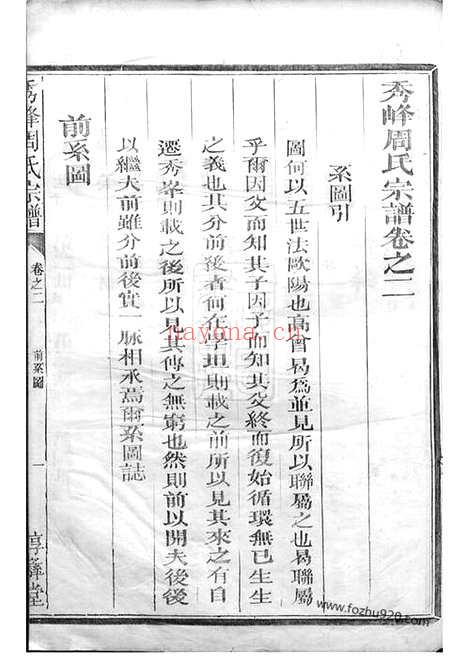 秀峰周氏宗譜卷之二
系圖引
圖何以五世法歐陽也高曾曷為並見所以聯屬之也曷聯屬
乎爾因父而知其子因子而知其父終而復始循環無已生生
之義也其分前後者何在學坦則載之前所以見其來之有自
遷秀峯則載之後所以見其傳之無窮也然則前以開夫後後
以繼夫前雖分前後實一脉相承焉爾系圖誌
前系圖
秀峰周氏宗譜
卷之二
前系圖
一
nayona.cn
www.fozhu920.com